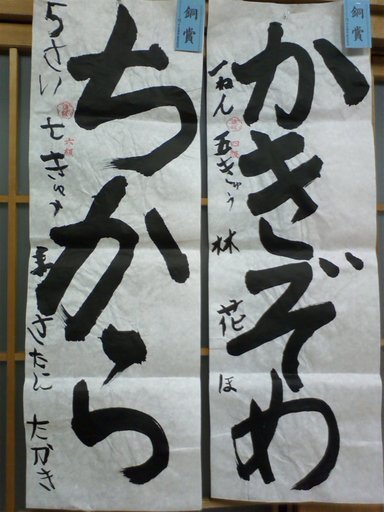 銅賞
かきぞめ
一ねん 五きゅう 林 花ほ
銅賞
ちから
5さい 七きゅう たかき